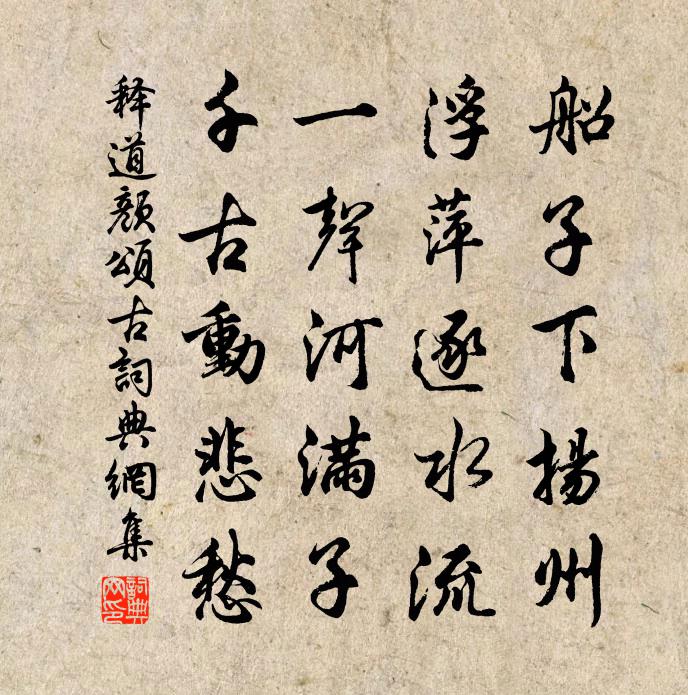 船子下揚州
浮萍逐水流
一聲河滿子
千古動悲愁
释道顏頌古詞典網集
詞典
网印